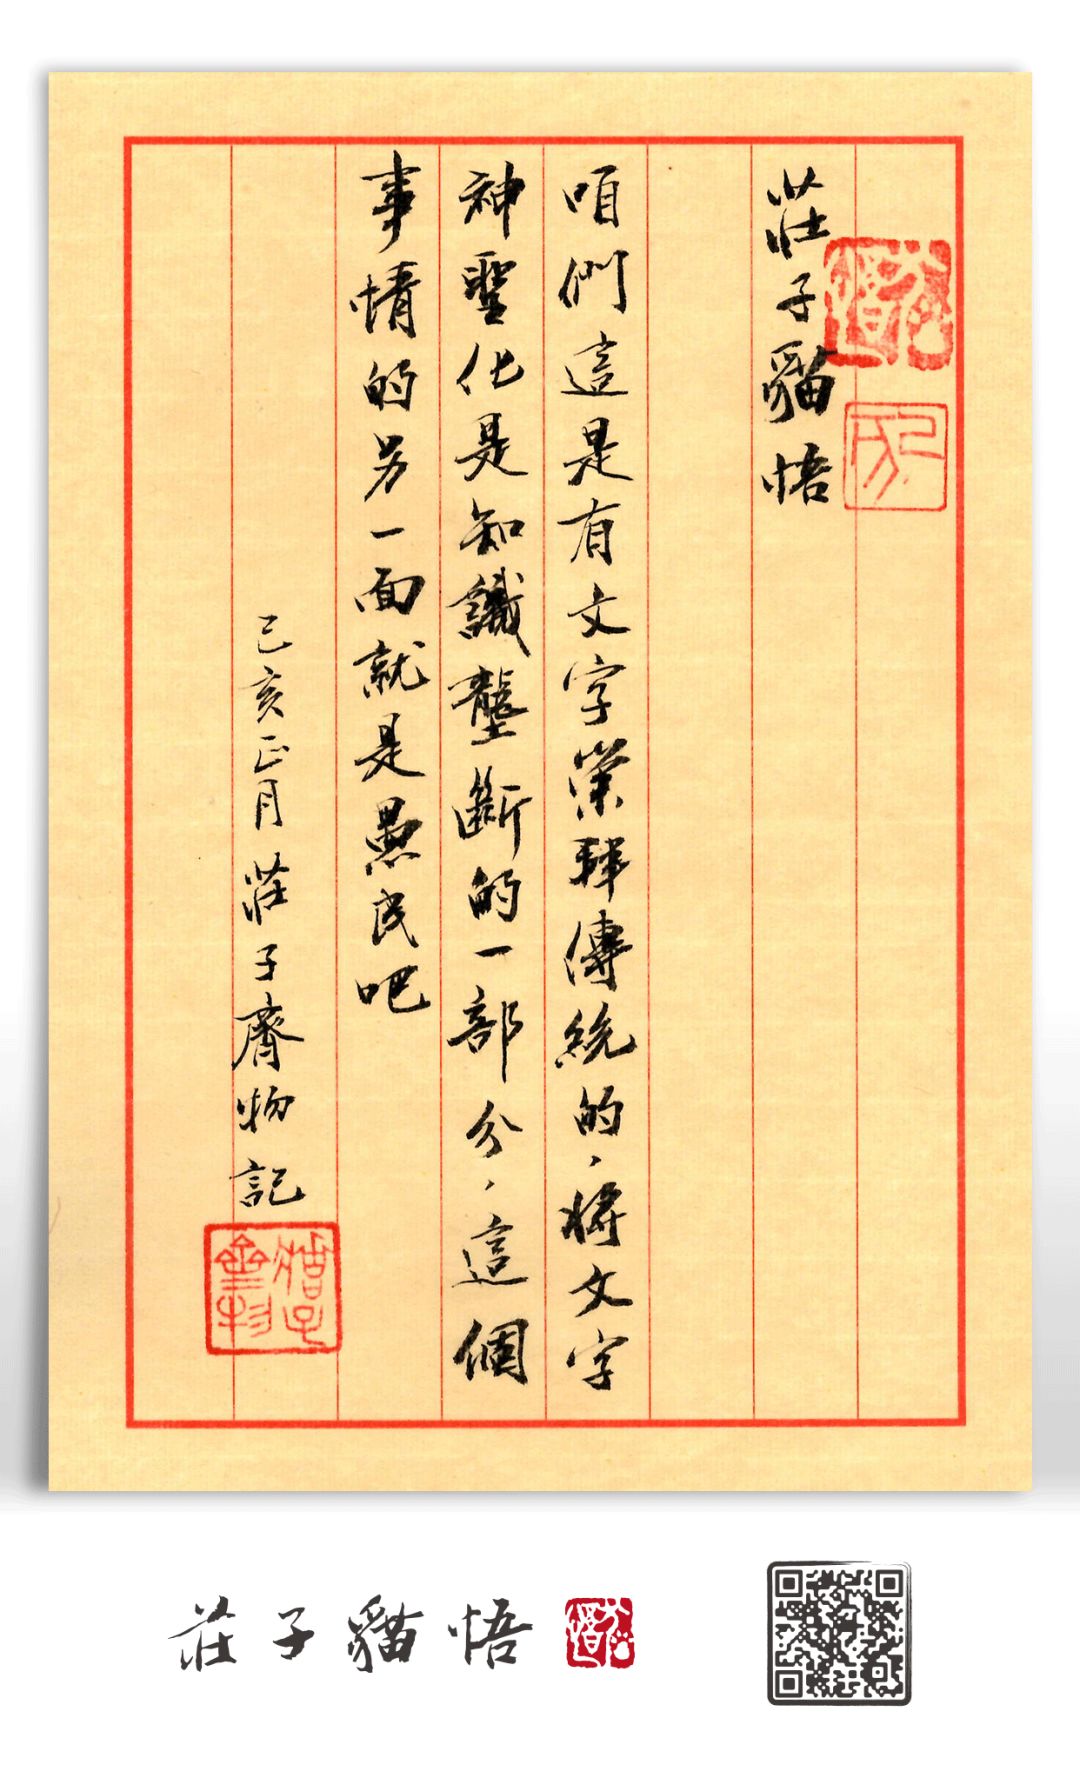 莊子貓悟
咱們這是有文字崇拜傳統的，將文字
神聖化是知識壟斷的一部分，這個
事情的另一面就是愚民吧
己亥正月莊子齊物記
莊子貓悟